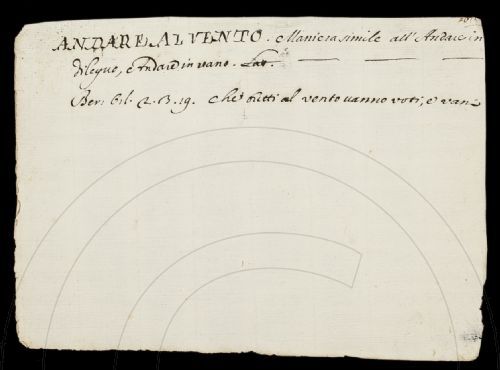 ANDARE AL VENTO. Maniera simile all'Andare in
dileguo, e Andare in vano. Lat.
Ber: Orl. 2. 13. 19. Che tutti al vento vanno voti, e van